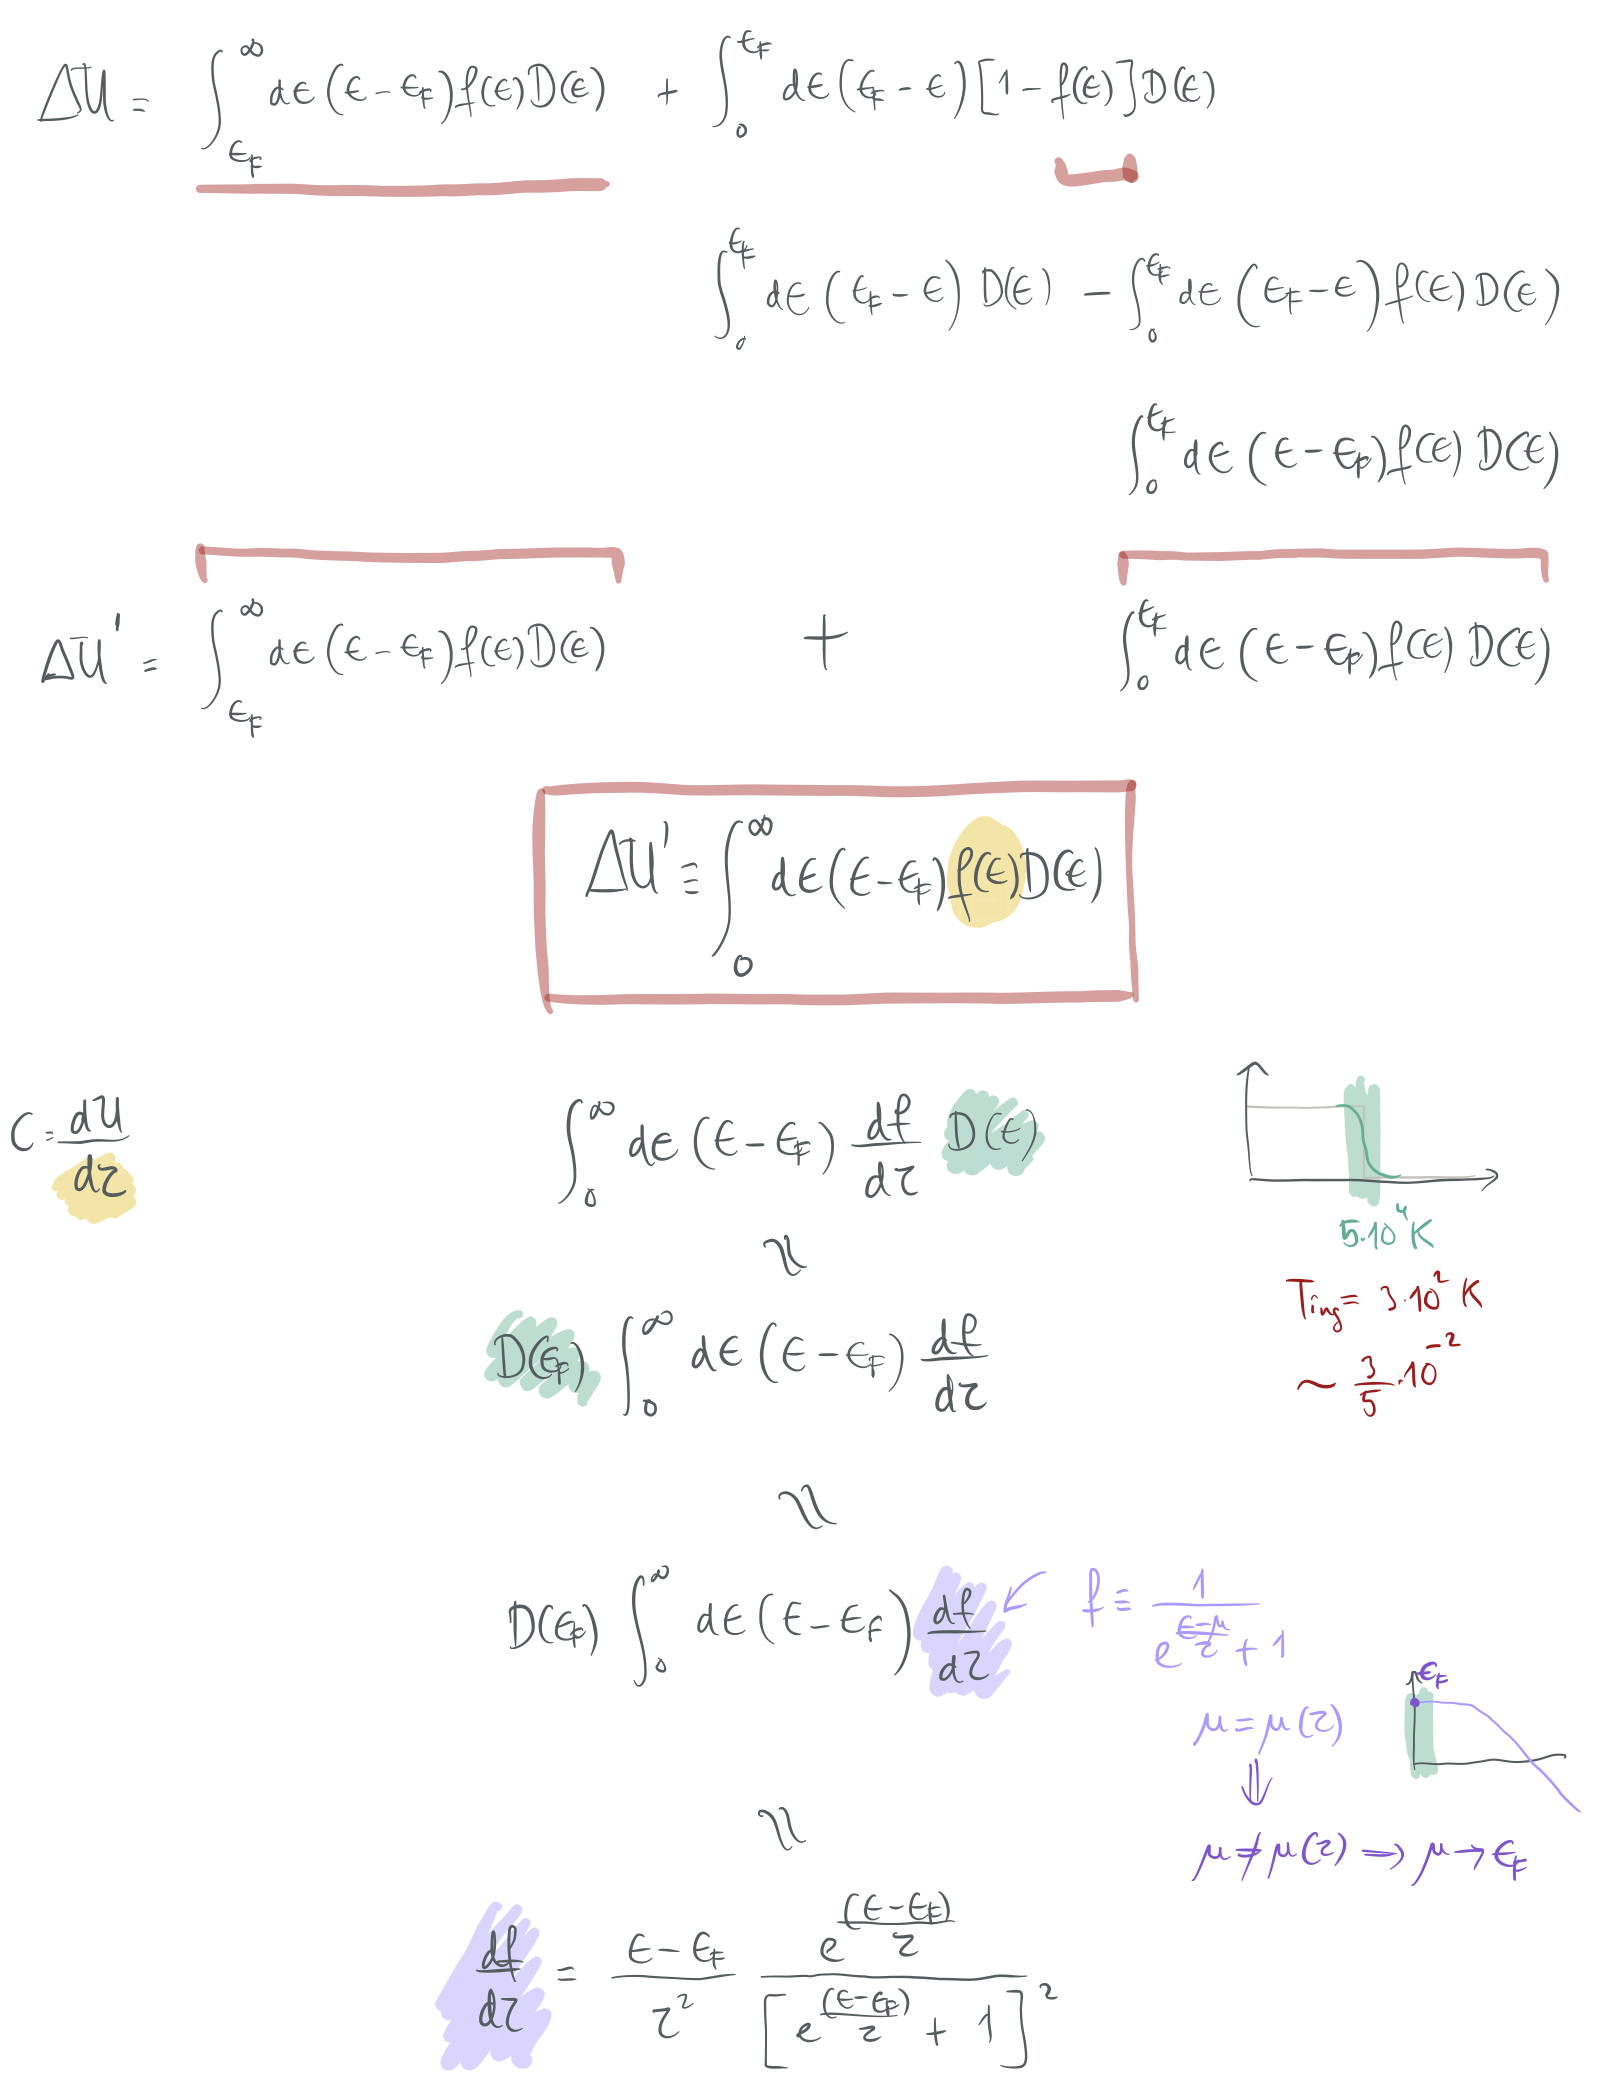 ΔU = ∫_{ϵ_F}^{∞} dϵ (ϵ - ϵ_F) f(ϵ) D(ϵ) + ∫_0^{ϵ_F} dϵ (ϵ_F - ϵ) [1 - f(ϵ)] D(ϵ)
∫_0^{ϵ_F} dϵ (ϵ_F - ϵ) D(ϵ) - ∫_0^{ϵ_F} dϵ (ϵ_F - ϵ) f(ϵ) D(ϵ)
∫_0^{ϵ_F} dϵ (ϵ - ϵ_F) f(ϵ) D(ϵ)
ΔU' = ∫_{ϵ_F}^{∞} dϵ (ϵ - ϵ_F) f(ϵ) D(ϵ) + ∫_0^{ϵ_F} dϵ (ϵ - ϵ_F) f(ϵ) D(ϵ)
ΔU' ≡ ∫_0^{∞} dϵ (ϵ - ϵ_F) f(ϵ) D(ϵ)
C = dU/dτ
∫_0^{∞} dϵ (ϵ - ϵ_F) df/dτ D(ϵ)
5·10^4 K
≈
T_{ing} = 3·10^2 K
D(ϵ_F) ∫_0^{∞} dϵ (ϵ - ϵ_F) df/dτ
~ 3/5 · 10^{-2}
≈
D(ϵ_F) ∫_0^{∞} dϵ (ϵ - ϵ_F) df/dτ
f ≡ 1/(e^{(ϵ-μ)/τ} + 1)
ϵ_F
μ = μ(τ)
⇓
≈
μ ≠ μ(τ) ⇒ μ → ϵ_F
df/dτ = (ϵ - ϵ_F)/τ^2 e^{(ϵ-ϵ_F)/τ}/[e^{(ϵ-ϵ_F)/τ} + 1]^2